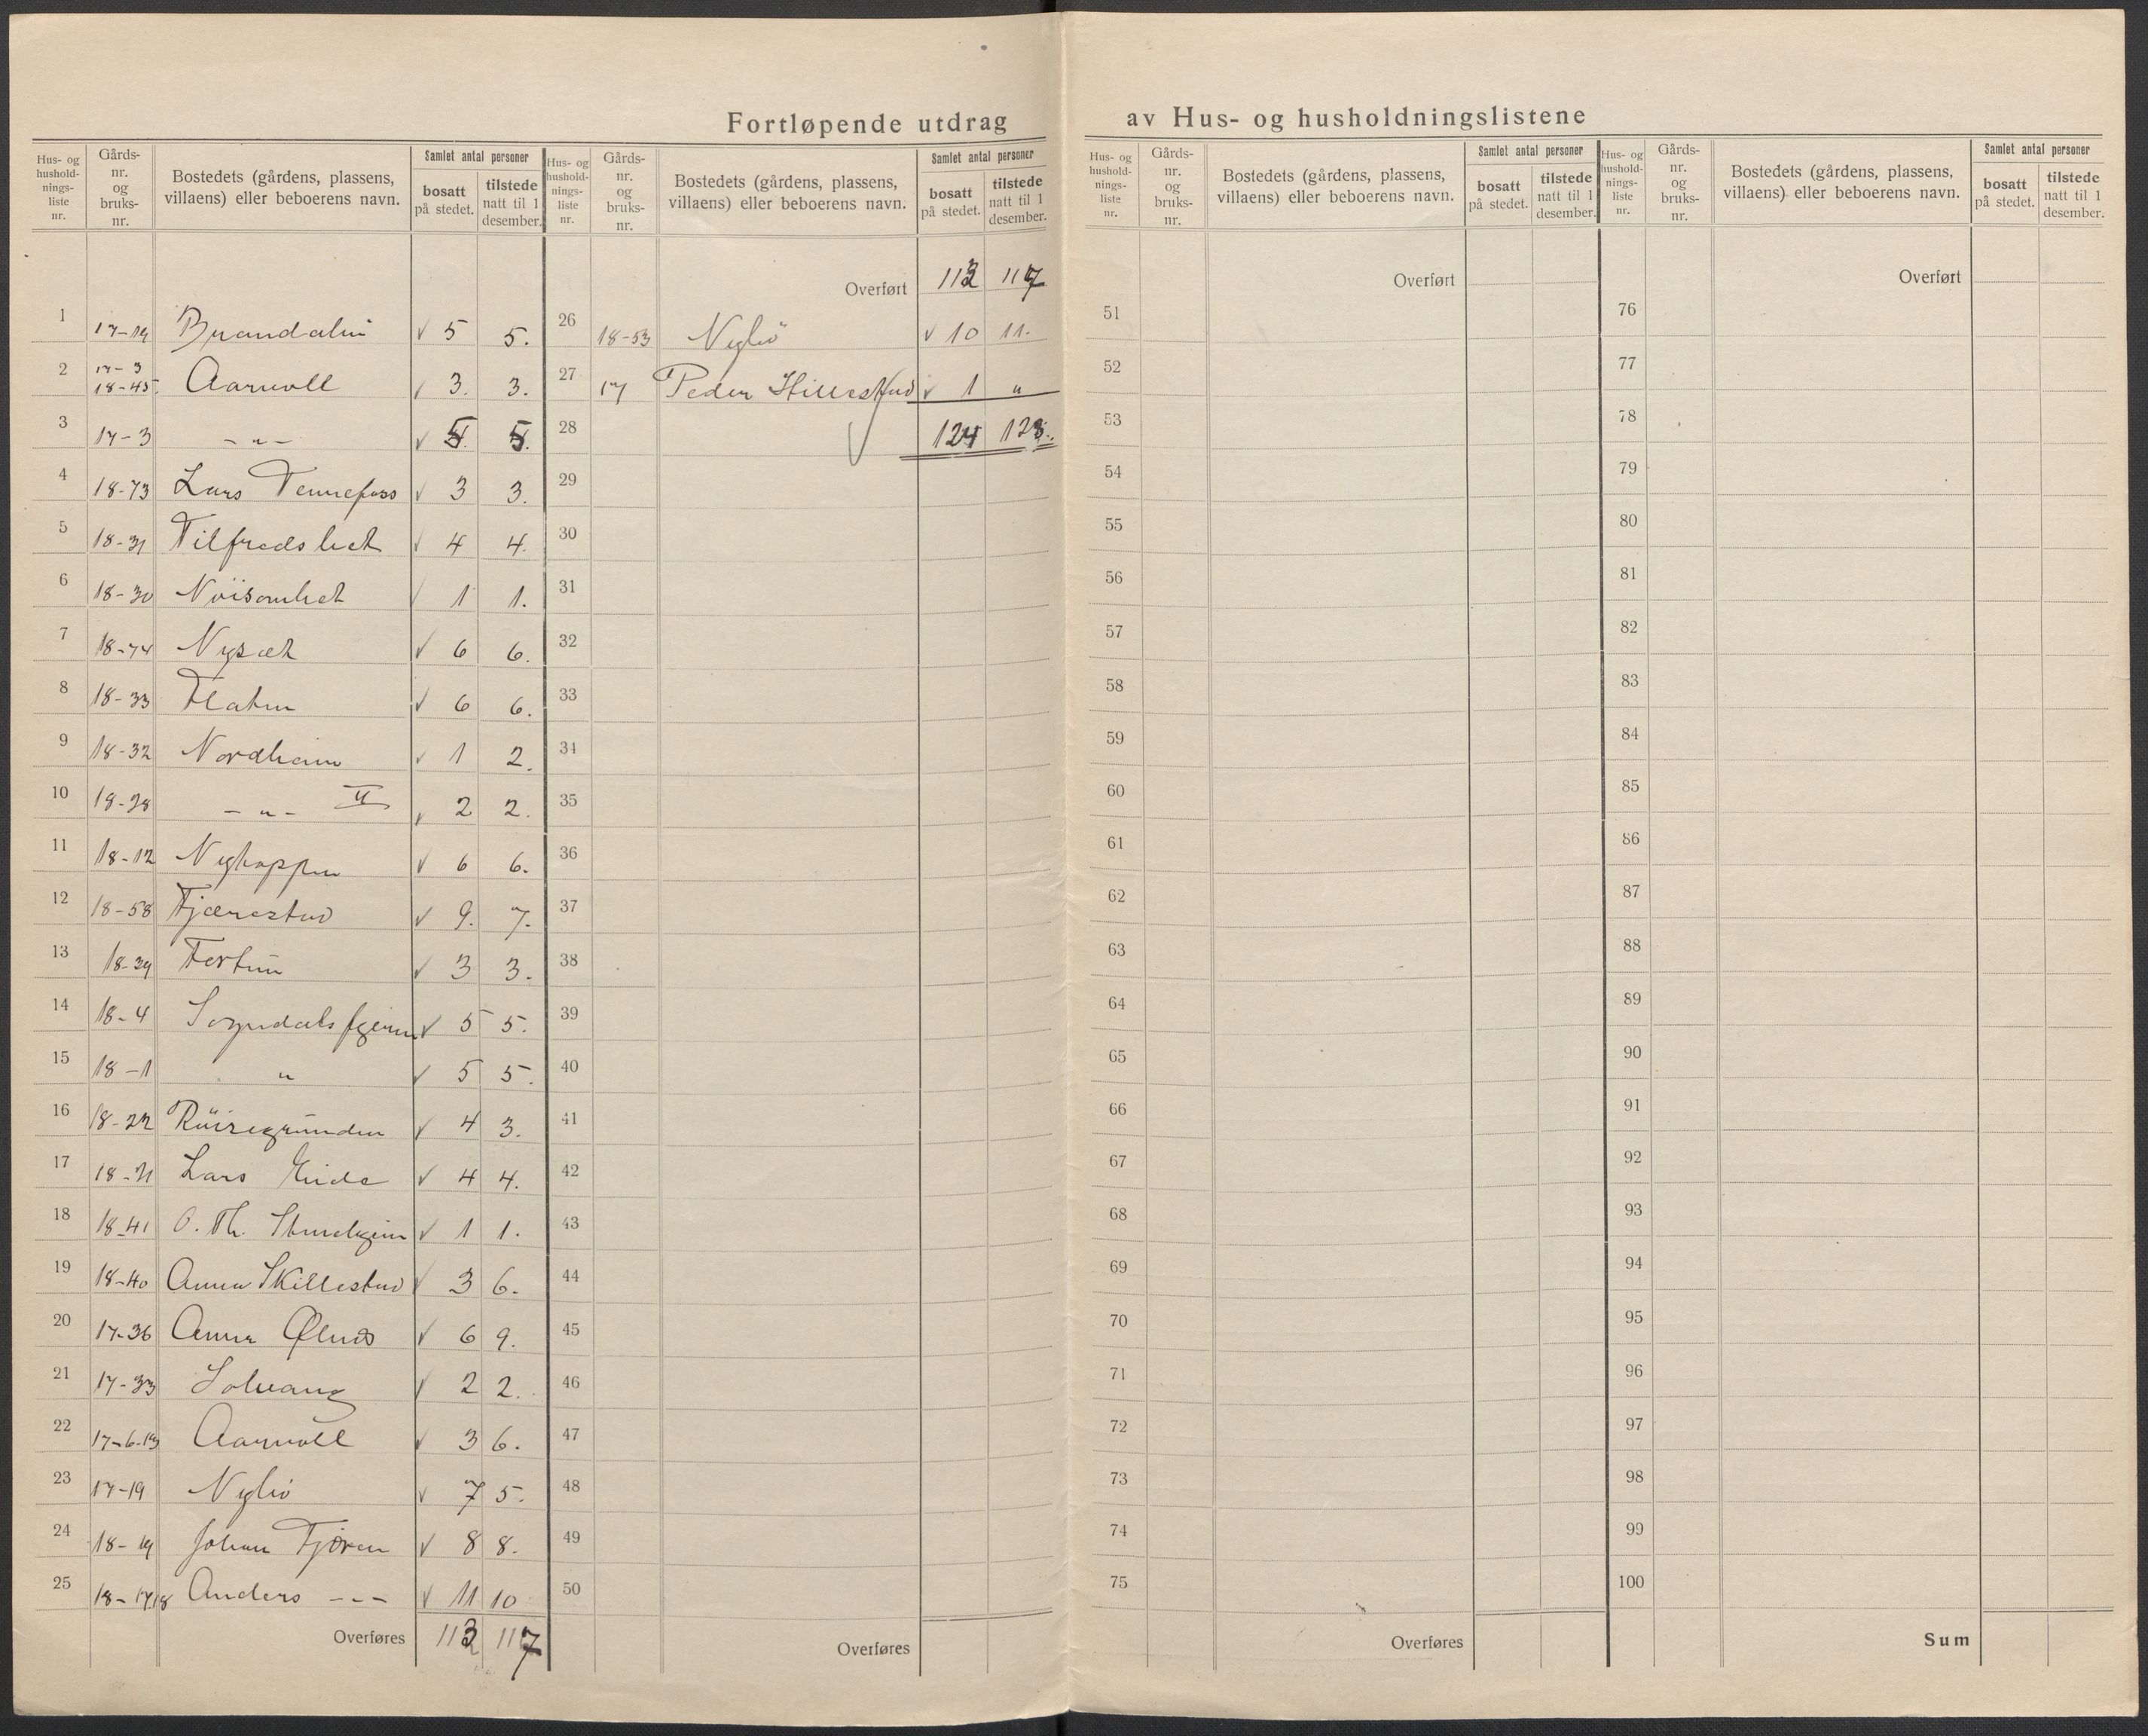 Fortløpende utdrag av Hus- og husholdningslistene
Hus- og hushold- nings- liste nr.
Gårds- nr. og bruks- nr.
Bostedets (gårdens, plassens, villaens) eller beboerens navn.
Samlet antal personer
bosatt på stedet.
tilstede natt til 1 desember.
1 17-19 5 5.
2 17-3 18-45. Aarvoll 3. 3.
3 17-3 -"- 5. 5.
4 18-73 Lars Tennefoss 3 3.
5 18-31 Tilfredshet 4 4.
6 18-30 Nöisomhet 1 1.
7 18-74 Nysæt 6 6.
8 18-33 6 6.
9 18-32 Nordheim 1 2.
10 18-28 -"- II 2 2.
11 18-12 6 6.
12 18-58 Fjærestad 9. 7.
13 18-39 Fortun 3 3.
14 18-4 Sogndalsfjæren 5 5.
15 18-1 " 5 5.
16 18-22 Röisegrunden 4 3.
17 18-21 Lars Eide 4 4.
18 18-41 O. Th. 1 1.
19 18-40 Anna Skillestad 3 6.
20 17-36 Anna Ølnes 6 9.
21 17-33 Solvang 2 2.
22 17-6-13 Aarvoll 3 6.
23 17-19 Nyliö 7 5.
24 18-19 Johan Fjören 8 8.
25 18-17,18 Anders --- 11 10
Overføres 113 117
Hus- og hushold- nings- liste nr.
Gårds- nr. og bruks- nr.
Bostedets (gårdens, plassens, villaens) eller beboerens navn.
Samlet antal personer
bosatt på stedet.
tilstede natt til 1 desember.
Overført 113 117
26 18-53 Nyliö 10 11.
27 17 Peder Hillestad 1 "
28 124 128.
29
30
31
32
33
34
35
36
37
38
39
40
41
42
43
44
45
46
47
48
49
50
Overføres
Hus- og hushold- nings- liste nr.
Gårds- nr. og bruks- nr.
Bostedets (gårdens, plassens, villaens) eller beboerens navn.
Samlet antal personer
bosatt på stedet.
tilstede natt til 1 desember.
Overført
51
52
53
54
55
56
57
58
59
60
61
62
63
64
65
66
67
68
69
70
71
72
73
74
75
Overføres
Hus- og hushold- nings- liste nr.
Gårds- nr. og bruks- nr.
Bostedets (gårdens, plassens, villaens) eller beboerens navn.
Samlet antal personer
bosatt på stedet.
tilstede natt til 1 desember.
Overført
76
77
78
79
80
81
82
83
84
85
86
87
88
89
90
91
92
93
94
95
96
97
98
99
100
Sum